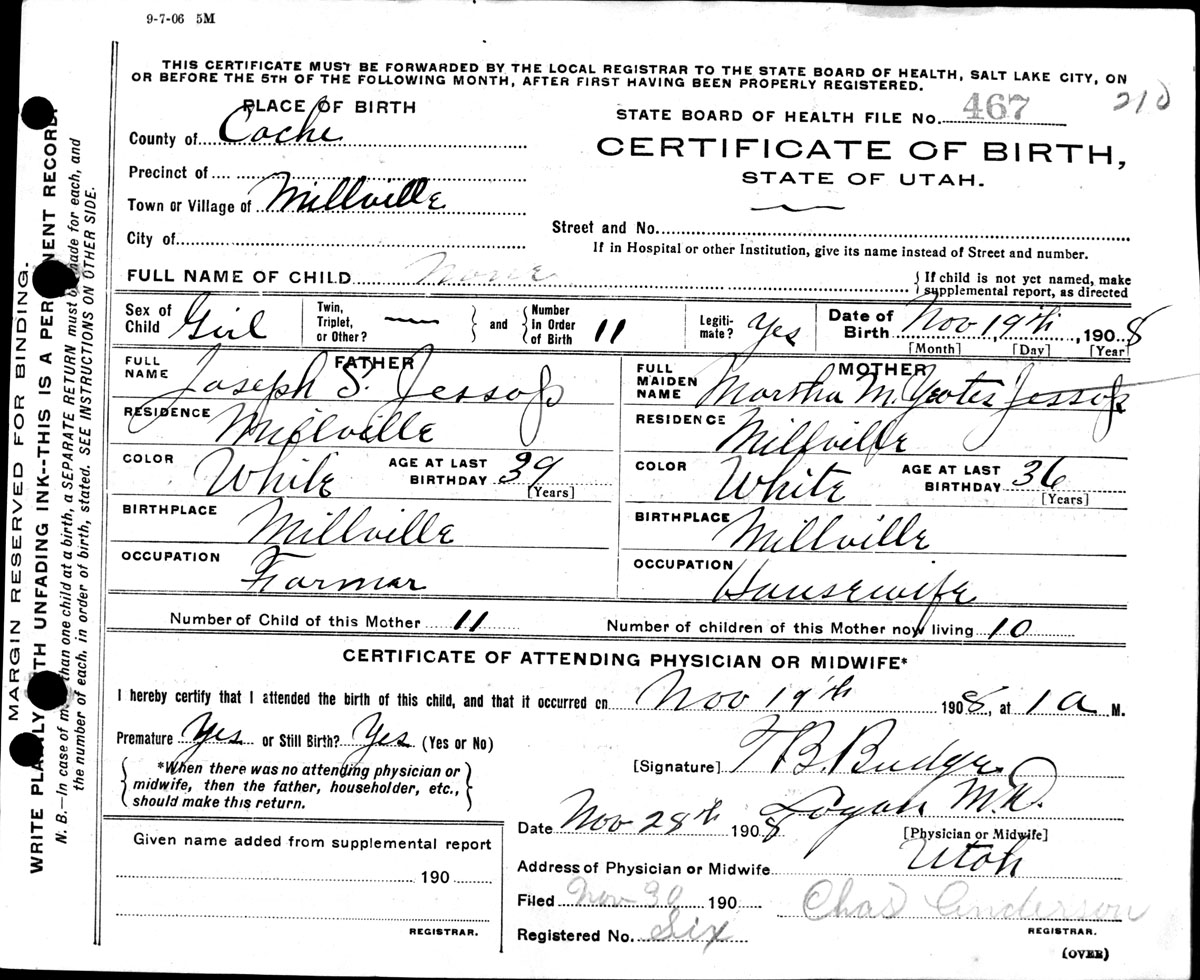 9-7-06 5M
THIS CERTIFICATE MUST BE FORWARDED BY THE LOCAL REGISTRAR TO THE STATE BOARD OF HEALTH, SALT LAKE CITY, ON
OR BEFORE THE 5TH OF THE FOLLOWING MONTH, AFTER FIRST HAVING BEEN PROPERLY REGISTERED.
PLACE OF BIRTH
STATE BOARD OF HEALTH FILE NO. 467 210
County of Cache
CERTIFICATE OF BIRTH,
STATE OF UTAH.
Precinct of
Town or Village of Millville
City of
Street and No.
If in Hospital or other Institution, give its name instead of Street and number.
FULL NAME OF CHILD None
{ If child is not yet named, make
supplemental report, as directed
Sex of Child Girl Twin, Triplet, or Other? — } and { Number In Order of Birth 11 Legiti- mate? Yes Date of Birth Nov 19th, 1908
[Month] [Day] [Year]
FATHER
FULL NAME Joseph S. Jessop
RESIDENCE Millville
COLOR White AGE AT LAST BIRTHDAY 39 [Years]
BIRTHPLACE Millville
OCCUPATION Farmar
MOTHER
FULL MAIDEN NAME Martha M. Yeates Jessop
RESIDENCE Millville
COLOR White AGE AT LAST BIRTHDAY 36 [Years]
BIRTHPLACE Millville
OCCUPATION Housewife
Number of Child of this Mother 11 Number of children of this Mother now living 10
CERTIFICATE OF ATTENDING PHYSICIAN OR MIDWIFE*
I hereby certify that I attended the birth of this child, and that it occurred on Nov 19th 1908, at 1 a M.
Premature Yes or Still Birth? Yes (Yes or No)
*When there was no attending physician or
midwife, then the father, householder, etc.,
should make this return.
[Signature] T B. Budge M.D.
Logan
Date Nov 28th 1908
[Physician or Midwife]
Address of Physician or Midwife Utah
Given name added from supplemental report
190
REGISTRAR.
Filed Nov 30 190 Chas Anderson
Registered No. Six REGISTRAR.
(OVER)
MARGIN RESERVED FOR BINDING.
WRITE PLAINLY WITH UNFADING INK--THIS IS A PERMANENT RECORD.
N. B.—In case of more than one child at a birth, a SEPARATE RETURN must be made for each, and
the number of each, in order of birth, stated. SEE INSTRUCTIONS ON OTHER SIDE.